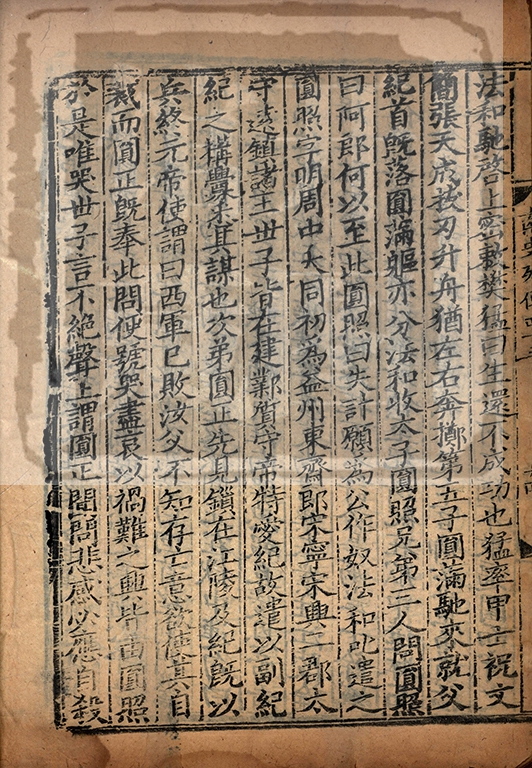 法和馳啓上密敕樊猛曰生還不成功也猛率甲士祝文
簡張天成拔刃升舟猶左右奔擲第五子圓滿馳來就父
紀首旣落圓滿軀亦分法和收太子圓照兄弟三人問圓照
曰阿郎何以至此圓照曰失計願爲公作奴法和叱遣之
圓照字明周中大同初爲益州東齋郎宋寧宋興二郡太
守遠鎮諸王世子皆在建鄴質守帝特愛紀故遣以副紀
紀之構釁寀宜謀也次弟圓正先見鎖在江陵及紀旣以
兵終元帝使謂曰西軍已敗汝父不知存亡意欲使其自
裁而圓正旣奉此問便號哭盡哀以禍難之興皆由圓照
於是唯哭世子言不絕聲上謂圓正聞問悲感必應自殺